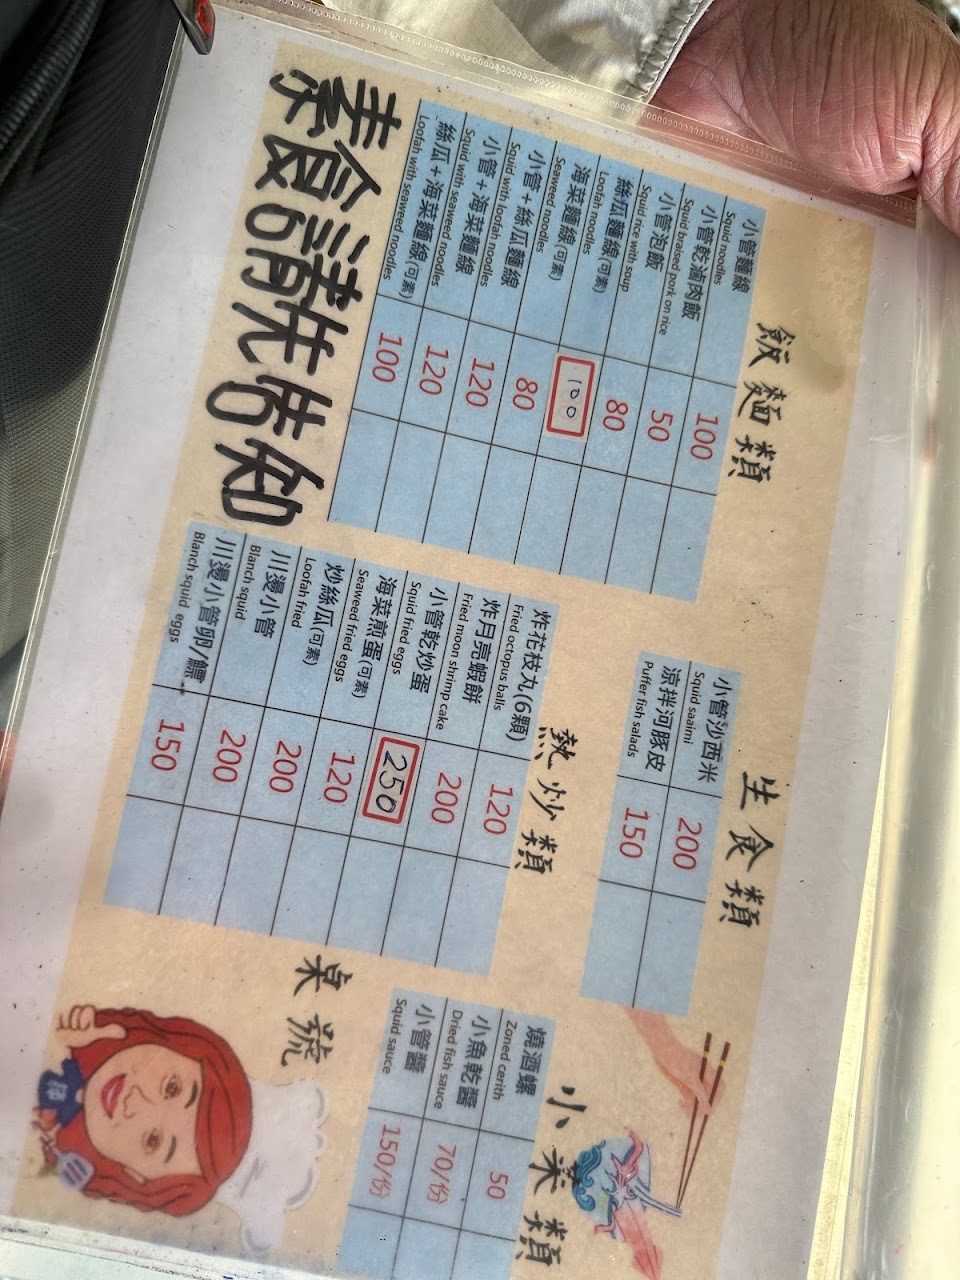 飯麵類
小管麵線 100
Squid noodles
小管乾滷肉飯 50
Squid braised pork on rice
小管泡飯 80
Squid rice with soup
絲瓜麵線(可素) 100
Loofah noodles
海菜麵線(可素) 80
Seaweed noodles
小管+絲瓜麵線 120
Squid with loofah noodles
小管+海菜麵線 120
Squid with seaweed noodles
絲瓜+海菜麵線(可素) 100
Loofah with seaweed noodles
素食請先告知
生食類
小管沙西米 200
Squid saaimi
涼拌河豚皮 150
Puffer fish salads
熱炒類
炸花枝丸(6顆) 120
Fried octopus balls
炸月亮蝦餅 200
Fried moon shrimp cake
小管乾炒蛋 250
Squid fried eggs
海菜煎蛋(可素) 120
Seaweed fried eggs
炒絲瓜(可素) 200
Loofah fried
川燙小管 200
Blanch squid
川燙小管卵/鰾 150
Blanch squid eggs
小菜類
燒酒螺 50
Zoned cerith
小魚乾醬 70/份
Dried fish sauce
小管醬 150/份
Squid sauce
桌號